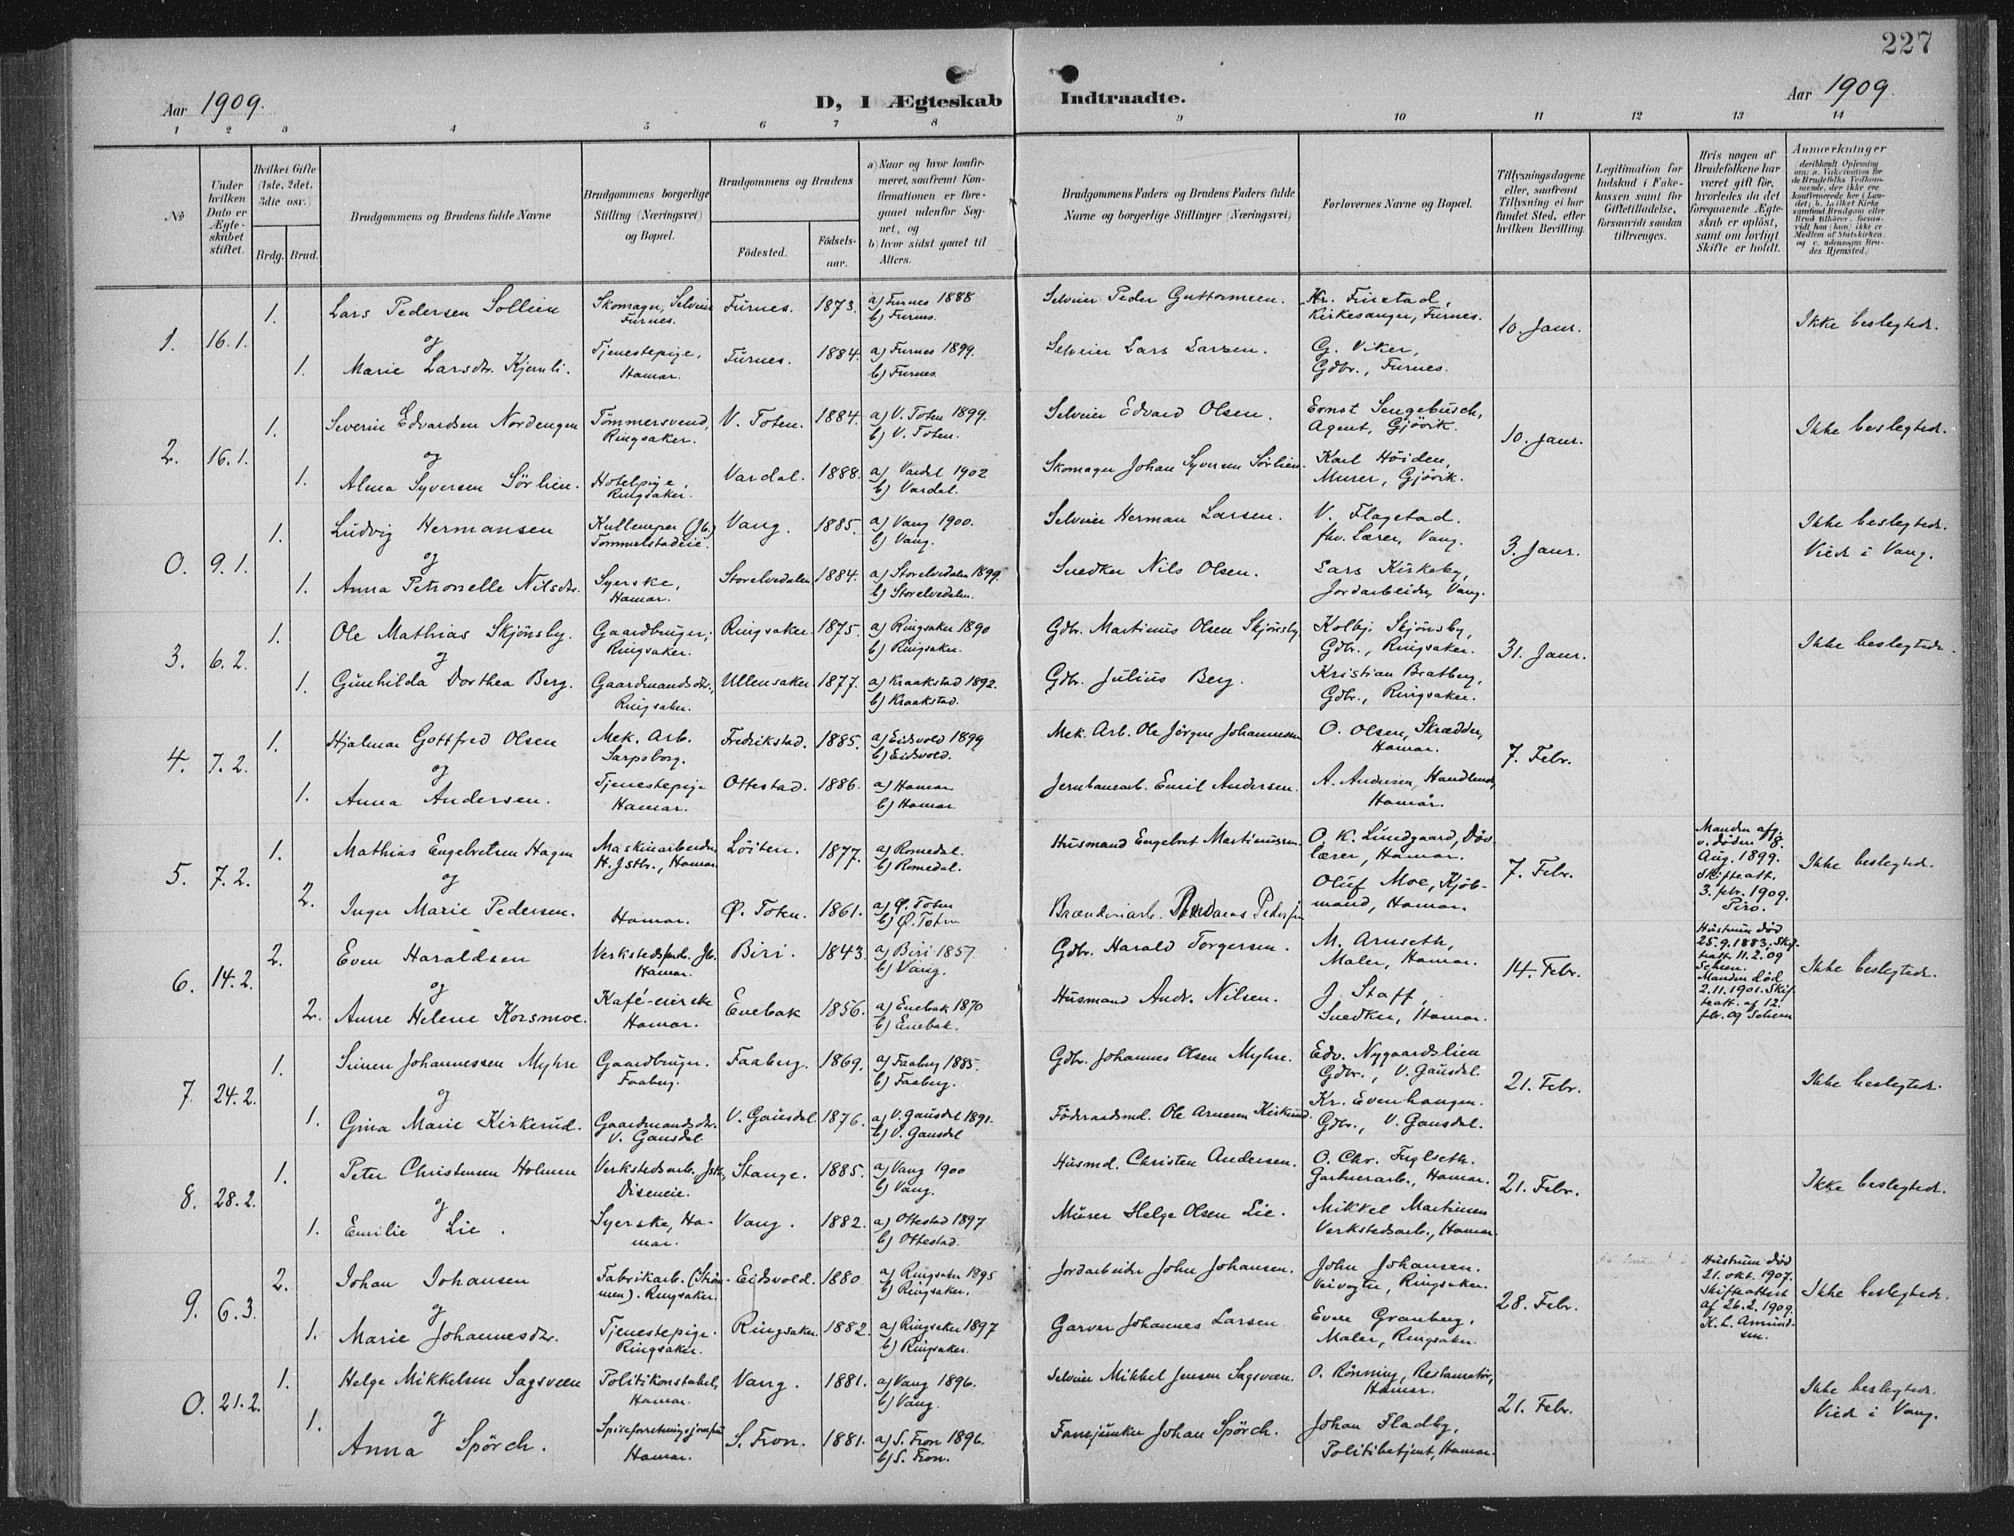 227
Aar 1909.
D, I Ægteskab Indtraadte.
Aar 1909.
1 2 3 4 5 6 7 8 9 10 11 12 13 14
№
Under hvilken Dato er Ægteskabet stiftet.
Hvilket Gifte (1ste, 2det, 3die osv.)
Brdg. Brud.
Brudgommens og Brudens fulde Navne
Brudgommens borgerlige Stilling (Næringsvei) og Bopæl.
Brudgommens og Brudens
Fødested.
Fødselsaar.
a) Naar og hvor konfirmeret, saafremt Konfirmationen er foregaaet udenfor Sognet, og
b) hvor sidst gaaet til Alters.
Brudgommens Faders og Brudens Faders fulde Navne og borgerlige Stillinger (Næringsvei)
Forlovernes Navne og Bopæl.
Tillysningsdagene eller, saafremt Tillysning ei har fundet Sted, efter hvilken Bevilling.
Legitimation for Indskud i Enkekassen samt for Giftetilladelse, forsaavidt saadan tiltrænges.
Hvis nogen af Brudefolkene har været gift før, hvorledes da det foregaaende Ægteskab er opløst, samt om lovligt Skifte er holdt.
Anmærkninger
1. 16.1. 1. Lars Pedersen Sollien Skomager, Selveier Furnes. Furnes. 1873. a) Furnes 1888 b) Furnes. Selveier Peder Guttormsen. Kr. Finstad, Kirkesanger, Furnes. 10. Janr. Ikke beslegtede.
og
1. Marie Larsdtr. Kjernli. Tjenestepige, Hamar. Furnes. 1884. a) Furnes 1899. b) Furnes. Selveier Lars Larsen. G. Viker, Gdbr., Furnes.
2. 16.1. 1. Severin Edvardsen Nordengen Tømmersvend, Ringsaker. V. Toten. 1884. a) V. Toten 1899. b) V. Toten. Selveier Edvard Olsen. Ernst Sengebusch, Agent, Gjøvik. 10. Janr. Ikke beslegtede.
og
1. Alma Syversen Sørlien. Hotelpige, Ringsaker. Vardal. 1888. a) Vardal 1902 b) Vardal. Skomager Johan Syversen Sørlien. Karl Høiden, Murer, Gjøvik.
0. 9.1. 1. Ludvig Hermansen Kullemper (Jb.) Tommelstadeie. Vang. 1885. a) Vang 1900. b) Vang. Selveier Herman Larsen. V. Flagstad. fhv. Lærer, Vang. 3. Janr. Ikke beslegtede. Viede i Vang.
og
1. Anna Petronelle Nilsdtr. Syerske, Hamar. Storelvedalen 1884. a) Storelvedalen 1899. b) Storelvedalen. Snedker Nils Olsen. Lars Kirkeby, Jordarbeider, Vang.
3. 6.2. 1. Ole Mathias Skjønsby. Gaardbruger, Ringsaker. Ringsaker. 1875. a) Ringsaker 1890 b) Ringsaker. Gdbr. Martinus Olsen Skjønsby Kolbj. Skjønsby, Gdbr., Ringsaker. 31. Janr. Ikke beslegtede.
og
1. Gunhilda Dorthea Berg. Gaardmandsdtr., Ringsaker. Ullensaker 1877. a) Kraakstad 1892. b) Kraakstad. Gdbr. Julius Berg. Kristian Bratberg, Gdbr., Ringsaker.
4. 7.2. 1. Hjalmar Gottfred Olsen Mek. Arb. Sarpsborg. Fredrikstad. 1885. a) Eidsvold 1899 b) Eidsvold. Mek. Arb. Ole Jørgen Johannessen O. Olsen, Skrædder, Hamar. 7. Febr.
og
1. Anna Andersen. Tjenestepige Hamar. Ottestad. 1886. a) Hamar b) Hamar Jernbanearb. Emil Andersen. A. Andersen, Handlende, Hamar.
5. 7.2. 1. Mathias Engebretsen Hagen Maskinarbeider H. Jstbr., Hamar Løiten. 1877. a) Romedal. b) Romedal. Husmand Engebret Martinussen O. K. Lundgaard, Døvlærer, Hamar. 7. Febr. Manden afg. v. døden 8. Aug. 1899. Skifteatt. 3. febr. 1909. Piro. Ikke beslegtede.
og
2. Inger Marie Pedersen. Hamar. Ø. Toten. 1861. a) Ø. Toten b) Ø. Toten Oluf Moe, Kjøbmand, Hamar.
6. 14.2. 2. Even Haraldsen Verkstedsarb. Jb. Hamar. Biri. 1843. a) Biri 1857 b) Vang. Gdbr. Harald Torgersen. M. Arneseth, Maler, Hamar. 14. Febr. Hustrun død 25.9.1883. Skifteatt. 11.2.09 Scheen. Manden død 2.11.1901. Skifteatt. af 12. febr. 09 Scheen Ikke beslegtede.
og
2. Anne Helene Korsmoe. Kafé-eierske Hamar. Enebak 1856. a) Enebak 1870 b) Enebak. Husmand Andr. Nilsen. J. Staff, Snedker, Hamar.
7. 24.2. 1. Simen Johannessen Myhre Gaardbruger. Faaberg. Faaberg. 1869. a) Faaberg 1885. b) Faaberg. Gdbr. Johannes Olsen Myhre. Edv. Nygaardslien Gdbr., V. Gausdal. 21. Febr. Ikke beslegtede.
og
1. Gina Marie Kirkerud. Gaardmandsdtr. V. Gausdal V. Gausdal 1876. a) V. Gausdal 1891. b) V. Gausdal Føderaadsmd. Ole Arnesen Kirkerud. Kr. Evenhaugen. Gdbr., V. Gausdal.
8. 28.2. 1. Peter Christensen Holmen Verkstedsarb. Jstb. Diseneie. Stange. 1885. a) Vang 1900 b) Vang. Husmd. Christen Andersen. O. Chr. Fuglseth. Gartnerarb., Hamar. 21. Febr. Ikke beslegtede.
og
1. Emilie Lie. Syerske, Hamar. Vang. 1882. a) Ottestad 1897 b) Ottestad. Murer Helge Olsen Lie. Mikkel Martinsen Verkstedsarb., Hamar.
9. 6.3. 2. Johan Johansen Fabrikarb. (Strømmen). Ringsaker. Eidsvold. 1880. a) Ringsaker 1895 b) Ringsaker. Jordarbeider John Johansen. John Johansen. Veivogter, Ringsaker. 28. Febr. Hustrun død 21. okt. 1907. Skifteattest af 26.2.1909. K. L. Amundsen. Ikke beslegtede.
og
1. Marie Johannesdtr. Tjenestepige. Ringsaker. Ringsaker. 1882. a) Ringsaker 1897 b) Ringsaker. Garver Johannes Larsen Even Granberg, Maler, Ringsaker.
0. 21.2. 1. Helge Mikkelsen Sagsveen Politikonstabel, Hamar. Vang. 1881. a) Vang 1896. b) Vang. Selveier Mikkel Jensen Sagsveen. O. Rønning, Restauratør, Hamar. 21. Febr. Ikke beslegtede. Viede i Vang.
og
1. Anna Spörck. Hamar. S. Fron. 1881. a) S. Fron 1896. b) S. Fron. Fanejunker Johan Spörck. Johan Fladby, Politibetjent, Hamar.